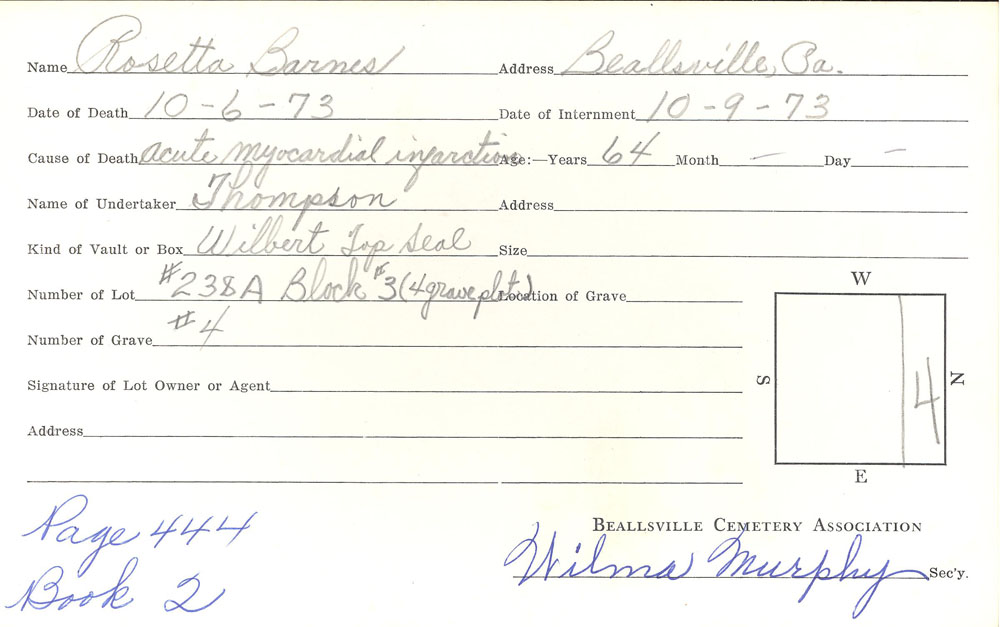 Name Rosetta Barnes Address Beallsville, Pa.
Date of Death 10-6-73 Date of Internment 10-9-73
Cause of Death acute myocardial infarction Age:—Years 64 Month — Day —
Name of Undertaker Thompson Address
Kind of Vault or Box Wilbert Top Seal Size
Number of Lot #238A Block #3 (4 grave plot) Location of Grave
Number of Grave #4
Signature of Lot Owner or Agent
Address
W
S
N
4
E
Page 444
Book 2
BEALLSVILLE CEMETERY ASSOCIATION
Wilma Murphy Sec'y.